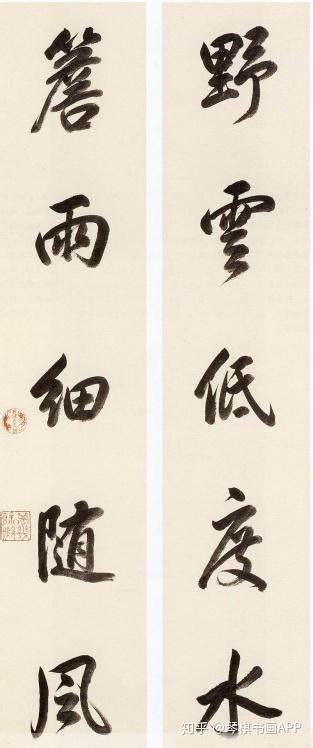 野雲低度水
簷雨細随風
知乎 @琴棋书画APP